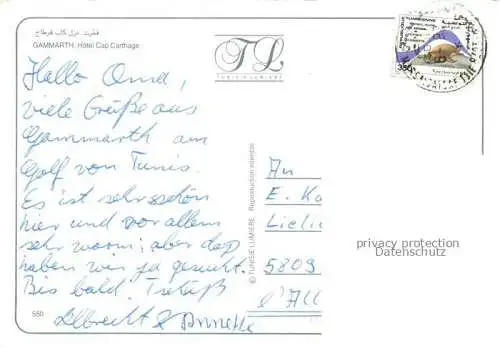 قمرت. نزل كاب قرطاج
GAMMARTH, Hôtel Cap Carthage
TL
TUNISIE LUMIERE
REPUBLIQUE TUNISIENNE
350
Hallo Oma,
viele Grüße aus
Gammarth am
Golf von Tunis.
Es ist sehr schön
hier und vor allem
sehr warm; aber das
haben wir ja gesucht.
Bis bald.
Albrecht & Annette
© TUNISIE LUMIERE Reproduction interdite
An
E. Ka
5809
l'All
privacy protection
Datenschutz
550